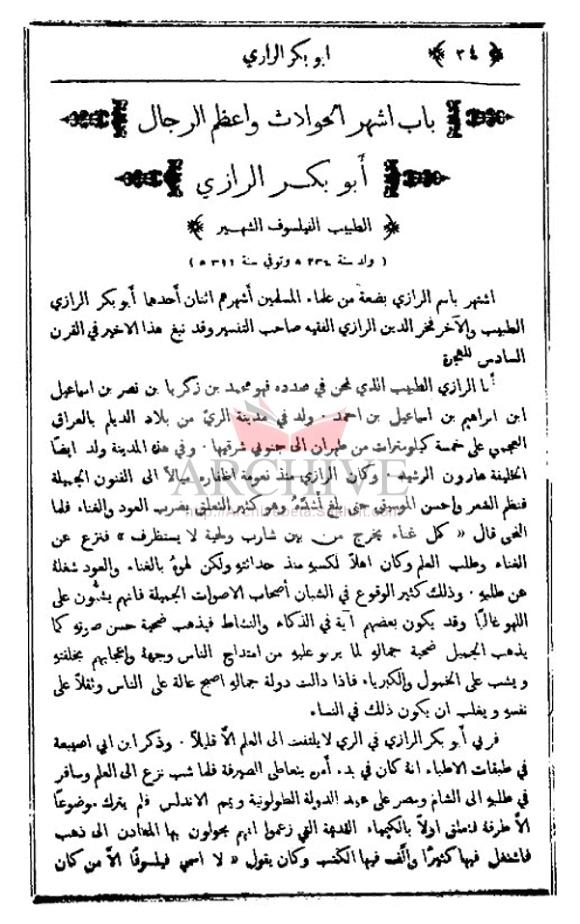 ﴿ ٣٤ ﴾ ابو بكر الرازي
باب اشهر الحوادث واعظم الرجال
أبو بكر الرازي
﴿ الطبيب الفيلسوف الشهير ﴾
( ولد سنة ٢٣٤ ه وتوفي سنة ٣١١ ه )
اشتهر باسم الرازي بضعة من علماء المسلمين أشهرهم اثنان أحدها أبو بكر الرازي
الطبيب والآخر فخر الدين الرازي الفقيه صاحب التفسير وقد نبغ هذا الاخير في القرن
السادس للهجرة
أما الرازي الطبيب الذي نحن في صدده فهو محمد بن زكريا بن نصر بن اسماعيل
ابن ابراهيم بن اسماعيل بن احمد . ولد في مدينة الريّ من بلاد الديلم بالعراق
العجمي على خمسة كيلومترات من طهران الى جنوبي شرقيها . وفي هذه المدينة ولد ايضًا
الخليفة هارون الرشيد . وكان الرازي منذ نعومة اظفاره ميالاً الى الفنون الجميلة
فنظم الشعر وأحسن الموسيقى حتى بلغ أشدّه وهو كثير التعلق بضرب العود والغناء فلما
التحى قال « كل غناء يخرج من بين شارب ولحية لا يستظرف » فنزع عن
الغناء وطلب العلم وكان اهلاً لكسبه منذ حداثته ولكن لهوه بالغناء والعود شغله
عن طلبه . وذلك كثير الوقوع في الشبان أصحاب الاصوات الجميلة فانهم يشبُّون على
اللهو غالبًا وقد يكون بعضهم آية في الذكاء والنشاط فيذهب ضحية حسن صوته كما
يذهب الجميل ضحية جماله لما يربو عليه من امتداح الناس وجهة واعجابهم بخلقته
ويشب على الخمول والكبرياء فاذا دالت دولة جماله اصبح عالة على الناس وثقلاً على
نفسه ويغلب ان يكون ذلك في النساء
فربي أبو بكر الرازي في الري لا يلتفت الى العلم الاَّ قليلاً . وذكر ابن ابي اصيبعة
في طبقات الاطباء انه كان في بدء أمره يتعاطى الصيرفة فلما شب نزع الى العلم وسافر
في طلبه الى الشام ومصر على عهد الدولة الطولونية ويمم الاندلس فلم يترك موضوعًا
الاَّ طرقه فتعلق اولاً بالكيمياء القديمة التي زعموا انهم يحولون بها المعادن الى ذهب
فاشتغل فيها كثيرًا وألَّف فيها الكتب وكان يقول « لا اسمي فيلسوفًا الاَّ من كان
ARCHIVE